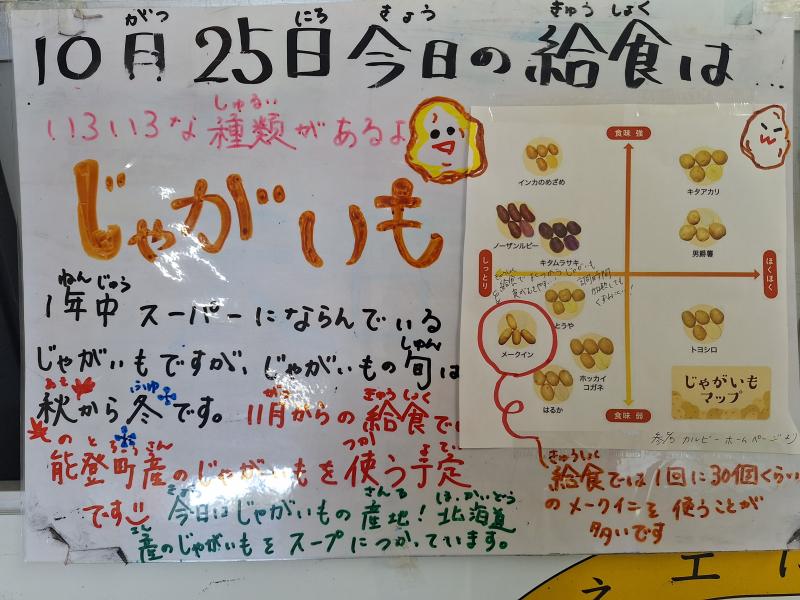 10月25日今日の給食は…
がつ にち きょう きゅうしょく
いろいろな種類があるよ
しゅるい
じゃがいも
ねんじゅう
1年中 スーパーにならんでいる
じゃがいもですが、じゃがいもの旬は
しゅん
あき ふゆ
秋から冬です。11月からの給食で
がつ きゅうしょく
のとちょうさん つか よてい
能登町産のじゃがいもを使う予定
です
今日はじゃがいもの産地！北海道
きょう さんち ほっかいどう
産のじゃがいもをスープにつかっています。
さん
食味 強
インカのめざめ
キタアカリ
ノーザンルビー
キタムラサキ
男爵薯
しっとり
ほくほく
とうや
メークイン
トヨシロ
ホッカイ
コガネ
はるか
じゃがいも
マップ
食味 弱
カルビーホームページより
きゅうしょく
給食では1回に30個くらい
のメークインを使うことが
多いです
エ